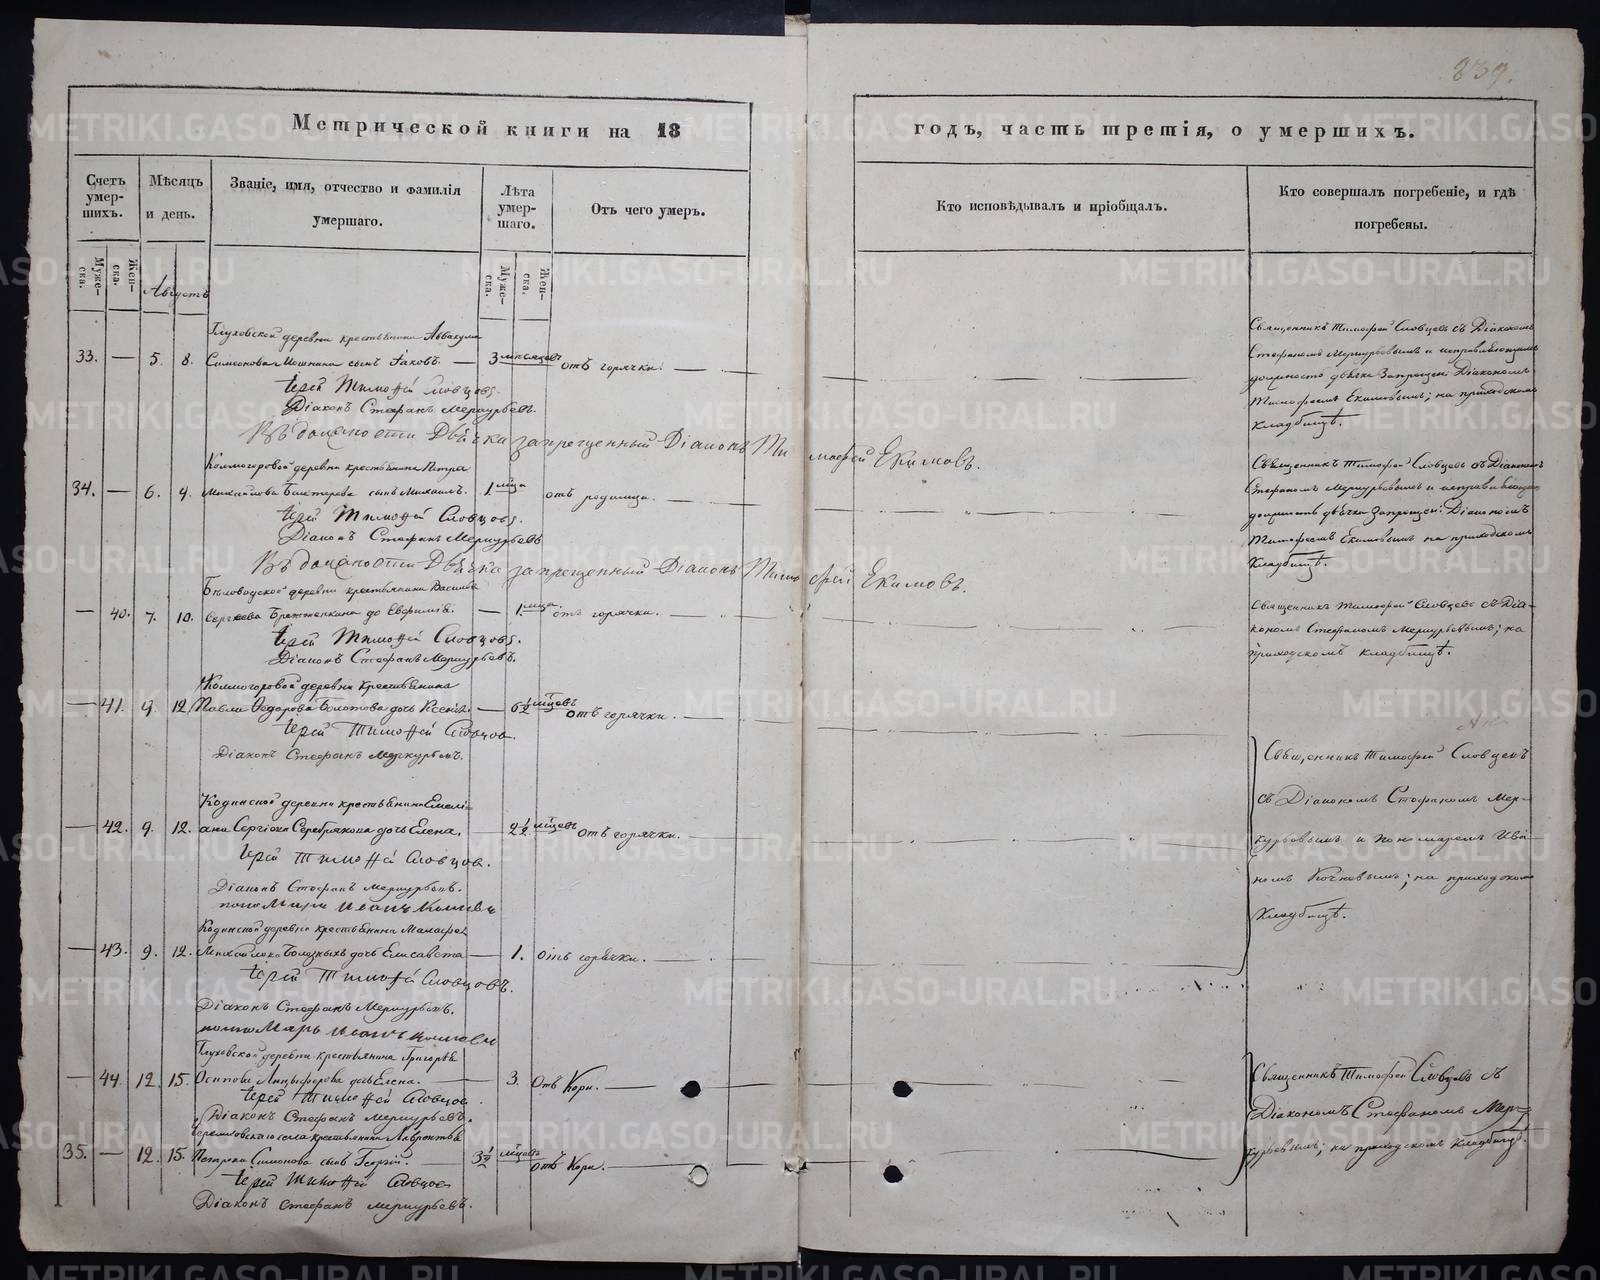 839.
Метрической книги на 18
годъ, часть третія, о умершихъ.
Счетъ умер-шихъ.
Мѣсяцъ и день.
Званіе, имя, отчество и фамилія умершаго.
Лѣта умер-шаго.
Отъ чего умеръ.
Кто исповѣдывалъ и пріобщалъ.
Кто совершалъ погребеніе, и гдѣ погребены.
Муже-ска.
Жен-ска.
Августъ
Муже-ска.
Жен-ска.
Глуховской деревни крестьянина Аввакума
33. — 5. 8. Симеонова сынъ Іаковъ. — 3 мѣсяцевъ отъ горячки.
Іерей Тимоѳей Словцовъ.
Діаконъ Стефанъ Меркурьевъ.
Въ должности Дьячка запрещенный Діаконъ Тимофей Екимовъ.
Священникъ Тимофей Словцовъ съ Діакономъ
Стефаномъ Меркурьевымъ и исправляющимъ
должность дьячка Запрещен: Діакономъ
Тимофеемъ Екимовымъ; на приходскомъ
кладбищѣ.
Колмогоровой деревни крестьянина Петра
34. — 6. 9. Михайлова Бахтерева сынъ Михаилъ. 1 мца отъ родимца.
Іерей Тимоѳей Словцовъ.
Діаконъ Стефанъ Меркурьевъ
Въ должности Дьячка запрещенный Діаконъ Тимофей Екимовъ.
Священникъ Тимофей Словцовъ съ Діакономъ
Стефаномъ Меркурьевымъ и исправляющ
должность дьячка Запрещен: Діакономъ
Тимофеемъ Екимовымъ на приходскомъ
Кладбищѣ.
Бѣловодской деревни крестьянина Василья
— 40. 7. 10. Сергѣева дь Евфимія. — 1 мца. отъ горячки.
Іерей Тимоѳей Словцовъ.
Діаконъ Стефанъ Меркурьевъ.
Священникъ Тимофей Словцовъ съ Діа-
кономъ Стефаномъ Меркурьевымъ; на
приходскомъ кладбищѣ.
Колмогоровой деревни крестьянина
— 41. 9. 12. Павла Федорова Болотова дочь Ксенія. — 6½ мцевъ отъ горячки.
Іерей Тимоѳей Словцов.
Діаконъ Стефанъ Меркурьевъ.
Кодинской деревни крестьянина Емелі-
— 42. 9. 12. ана Сергіова Серебрякова дочь Елена. — 2½ мцевъ отъ горячки.
Іерей Тимоѳей Словцов.
Діаконъ Стефанъ Меркурьевъ.
пономарь Иванъ
Священникъ Тимофей Словцевъ
съ Діакономъ Стефаномъ Мер-
курьевымъ и пономаремъ Ива-
номъ; на приходском
Кладбищѣ.
Кодинской деревни крестьянина
— 43. 9. 12. Михайлова Болозныхъ дочь Елисавета — 1. отъ горячки.
Іерей Тимоѳей Словцовъ.
Діаконъ Стефанъ Меркурьевъ.
пономарь Иванъ
Глуховской деревни крестьянина Григорья
— 44. 12. 15. Осипова Анцыферова дочь Елена. — 3. отъ Кори.
Іерей Тимоѳей Словцов.
Діаконъ Стефанъ Меркурьевъ.
Священникъ Тимофей Словцовъ съ
Діакономъ Стефаномъ Мер-
курьевымъ; на приходскомъ Кладбищѣ.
села крестьянина Лаврентья
35. — 12. 15. Петрова Симонова сынъ Георгій. — 3½ мцевъ отъ Кори.
Іерей Тимоѳей Словцов
Діаконъ Стефанъ Меркурьевъ.
METRIKI.GASO-URAL.RU